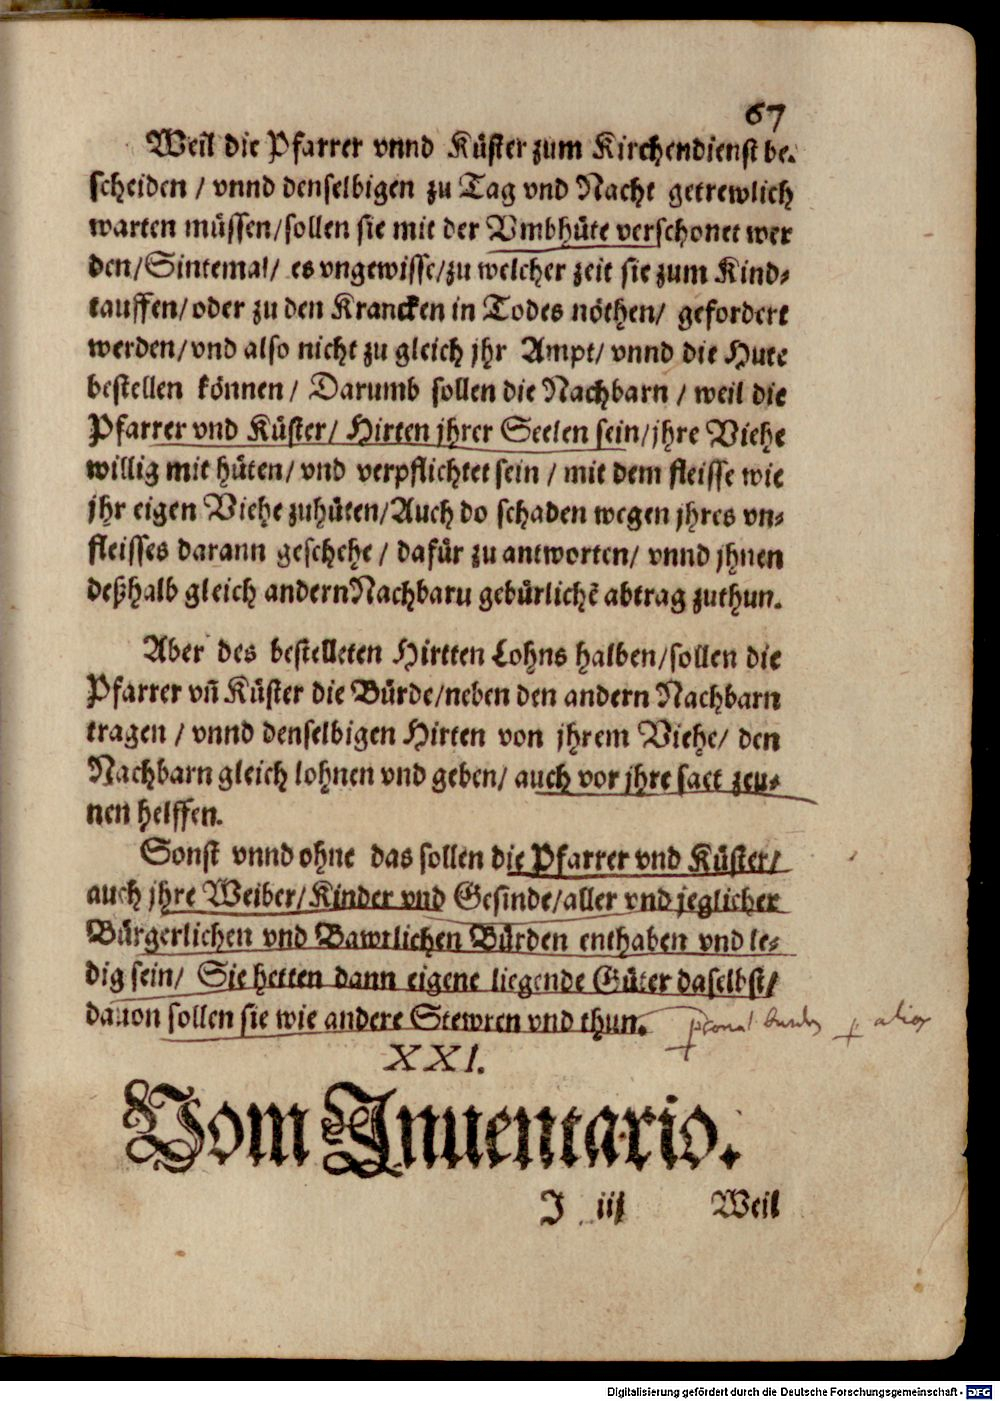 67
Weil die Pfarrer vnnd Küster zum Kirchendienst be-
scheiden / vnnd denselbigen zu Tag vnd Nacht getrewlich
warten müssen/sollen sie mit der Vmbhüte verschonet wer
den/Sintemal/ es vngewisse/zu welcher zeit sie zum Kind-
tauffen/oder zu den Krancken in Todes nöthen/ gefordert
werden/vnd also nicht zu gleich jhr Ampt/ vnnd die Hute
bestellen können / Darumb sollen die Nachbarn / weil die
Pfarrer vnd Küster/ Hirten jhrer Seelen sein/jhre Viehe
willig mit hüten/ vnd verpflichtet sein / mit dem fleisse wie
jhr eigen Viehe zuhüten/Auch do schaden wegen jhres vn-
fleisses darann geschehe / dafür zu antworten/ vnnd jhnen
deßhalb gleich andernNachbaru gebürlichē abtrag zuthun.
Aber des bestelleten Hirtten Lohns halben/sollen die
Pfarrer vñ Küster die Bürde/neben den andern Nachbarn
tragen / vnnd denselbigen Hirten von jhrem Viehe/ den
Nachbarn gleich lohnen vnd geben/ auch vor jhre saet zeu-
nen helffen.
Sonst vnnd ohne das sollen die Pfarrer vnd Küster/
auch jhre Weiber/Kinder vnd Gesinde/aller vnd jeglicher
Bürgerlichen vnd Bawrlichen Bürden enthaben vnd le-
dig sein/ Sie hetten dann eigene liegende Güter daselbst/
dauon sollen sie wie andere Stewren vnd thun.
XXI.
Vom Inuentario.
J iij Weil
Digitalisierung gefördert durch die Deutsche Forschungsgemeinschaft - DFG